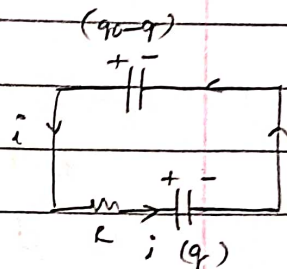 (q₀-q)
+ -
i
+ -
R i (q)